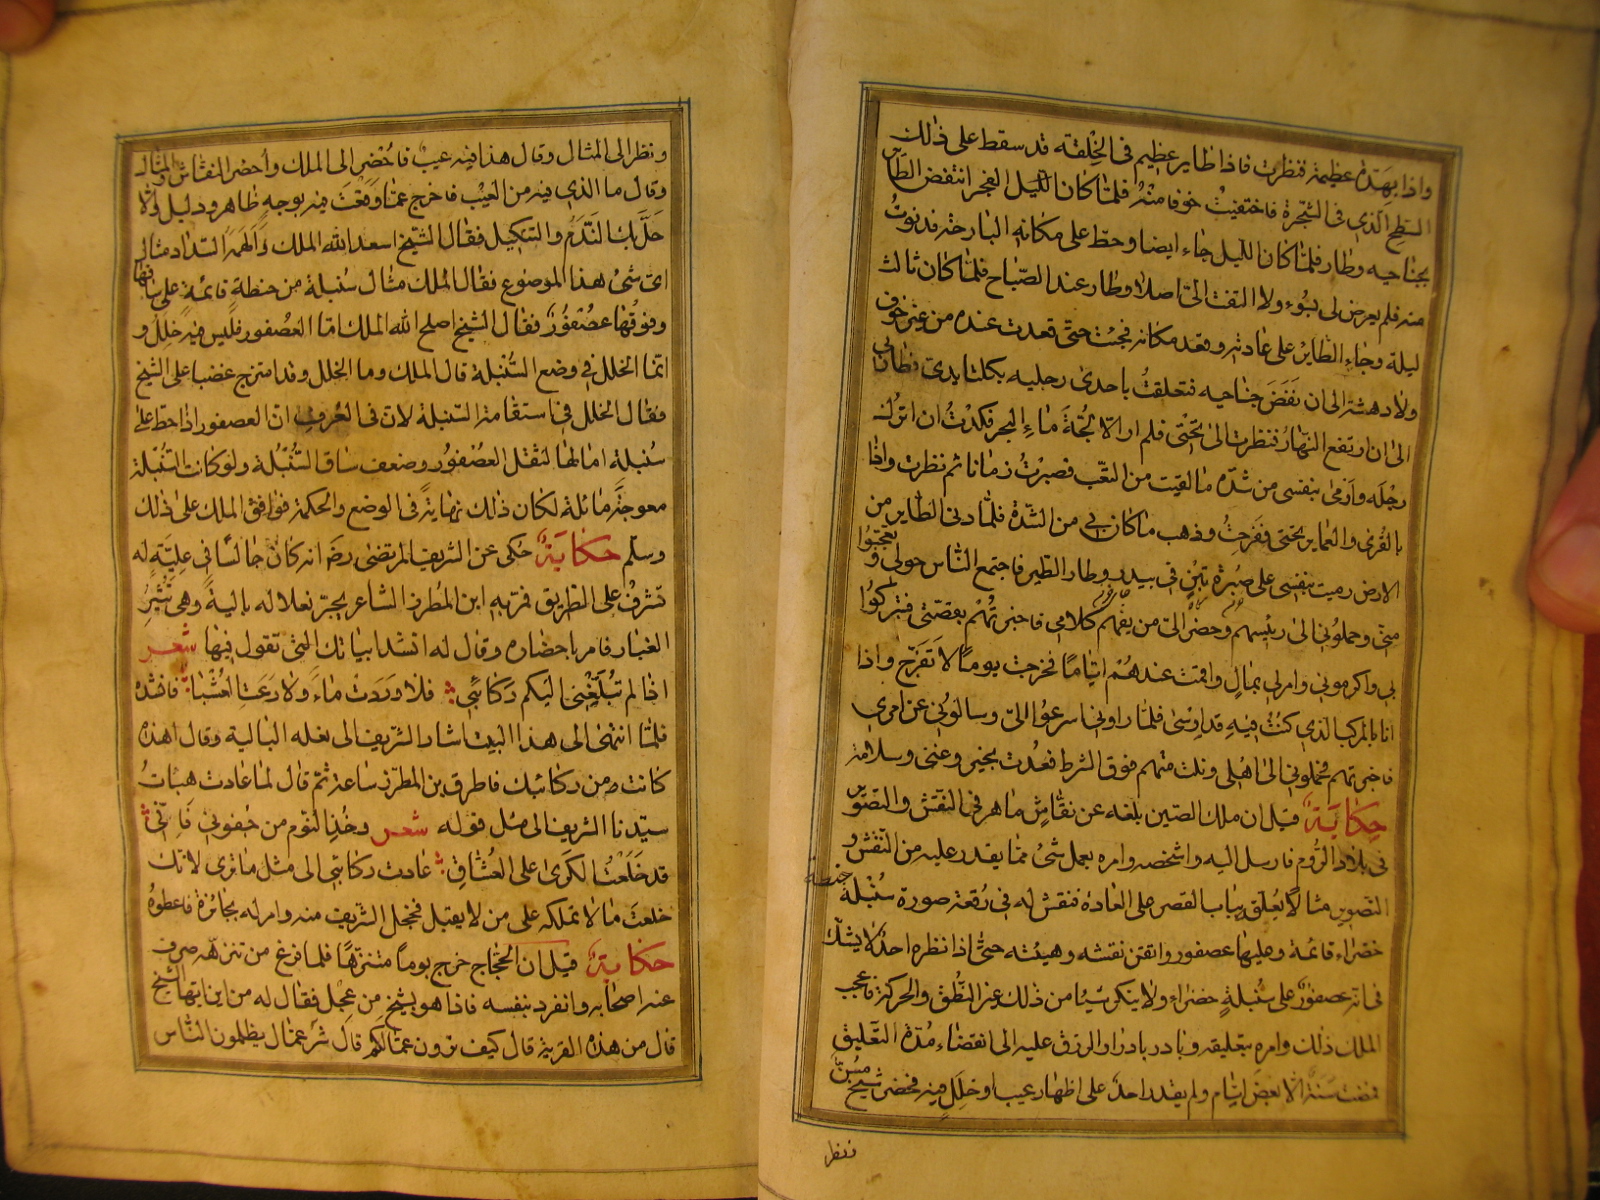 واذا بهدة عظيمة فنظرت فاذا طاير عظيم في الخلقة قد سقط على ذلك
السطح الذي في الشجرة فاختفيت خوفا منه فلما كان الليل الفجر انتفض الطاير
بجناحيه وطار فلما كان الليل جاء ايضا وحط على مكانه البارحة فدنوت
منه فلم يعرض لي بسوء ولا التفت الي اصلا وطار عند الصباح فلما كان ثالث
ليلة وجاء الطاير على عادته وقعد مكانه فجئت حتى قعدت عنده من غير خوف
ولا دهشة الى ان نفض جناحيه فتعلقت باحدى رجليه بكلتا يدي فطار بي
الى ان ارتفع النهار فنظرت الى تحتي فلم ار الا لجة ماء البحر فكدت ان اترك
رجله وارمي بنفسي من شدة ما لقيت من التعب فصبرت زمانا ثم نظرت واذا
بالقرى والعماير تحتي ففرحت وذهب ما كان بي من الشدة فلما دنى الطاير من
الارض رميت بنفسي على صبرة تبن في بيدر وطار الطير فاجتمع الناس حولي وتعجبوا
مني وحملوني الى رئيسهم وحضر الي من يفهم كلامي فاخبرتهم بقصتي فتبركوا
بي واكرموني وامر لي بمال واقمت عندهم اياما فخرجت يوما لا تفرج واذا
انا بالمركب الذي كنت فيه قد ارسى فلما راوني اسرعوا الي وسالوني عن امري
فاخبرتهم فحملوني الى اهلي ونلت منهم فوق الشرط فعدت بخير وغنى وسلامة
حكاية قيل ان ملك الصين بلغه عن نقاش ماهر في النقش والتصوير
في بلاد الروم فارسل اليه واشخصه وامره بعمل شئ مما يقدر عليه من النقش و
التصوير مثالا يعلق بباب القصر على العادة فنقش له في رقعة صورة سنبلة حنطة
خضراء قائمة وعليها عصفور واتقن نقشه وهيئته حتى اذا نظره احد لا يشك
في انه عصفور على سنبلة خضراء ولا ينكر شيئا من ذلك غير النطق والحركة فاعجب
الملك ذلك وامره بتعليقه وبادر بادرار الرزق عليه الى انقضاء مدة التعليق
فمضت سنة الا بعض ايام ولم يقدر احد على اظهار عيب او خلل فيه فحضر شيخ مسن
فنظر
ونظر الى المثال وقال هذا فيه عيب فاحضر الى الملك واحضر النقاش والمثال
وقال ما الذي فيه من العيب فاخرج عما وقعت فيه بوجه ظاهر ودليل والا
حل بك الندم والتنكيل فقال الشيخ اسعد الله الملك والهمه السداد مثال
اي شئ هذا الموضوع فقال الملك مثال سنبلة من حنطة قائمة على ساقها
وفوقها عصفور فقال الشيخ اصلح الله الملك اما العصفور فليس فيه خلل و
انما الخلل في وضع السنبلة قال الملك وما الخلل وقد امتزج غضبا على الشيخ
فقال الخلل في استقامة السنبلة لان في العرف ان العصفور اذا حط على
سنبلة امالها لثقل العصفور وضعف ساق السنبلة ولو كانت السنبلة
معوجة مائلة لكان ذلك نهاية في الوضع والحكمة فوافق الملك على ذلك
وسلم حكاية حكى عن الشريف المرتضى رضه انه كان جالسا في علية له
تشرف على الطريق فمر به ابن المطرز الشاعر يجر نعلا له بالية وهي تثير
الغبار فامر باحضاره وقال له انشد ابياتك التي تقول فيها شعر
اذا لم تبلغني اليكم ركائبي فلا وردت ماء ولا رعت العشبا فانشده
فلما انتهى الى هذا البيت اشار الشريف الى نعله البالية وقال اهذه
كانت من ركائبك فاطرق بن المطرز ساعة ثم قال لما عادت هبات
سيدنا الشريف الى مثل قوله شعر وخذ النوم من جفوني فاني
قد خلعت الكرى على العشاق عادت ركائبي الى مثل ما ترى لانك
خلعت ما لا تملكه على من لا يقبل فخجل الشريف منه وامر له بجائزة فاعطوه
حكاية قيل ان الحجاج خرج يوما متنزها فلما فرغ من تنزهه صرف
عنه اصحابه وانفرد بنفسه فاذا هو بشيخ من عجل فقال له من اين ايها الشيخ
قال من هذه القرية قال كيف ترون عمالكم قال شر عمال يظلمون الناس